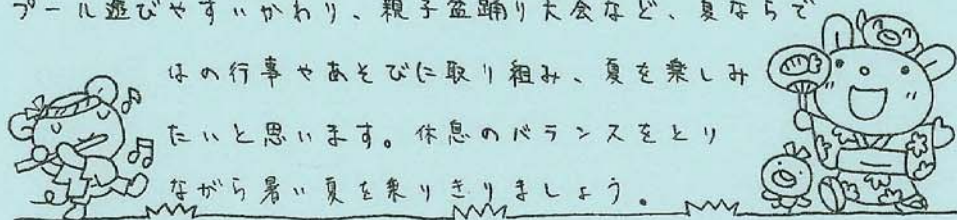 プール遊びやすいかわり、親子盆踊り大会など、夏ならで
はの行事やあそびに取り組み、夏を楽しみ
たいと思います。休息のバランスをとり
ながら暑い夏を乗りきりましょう。